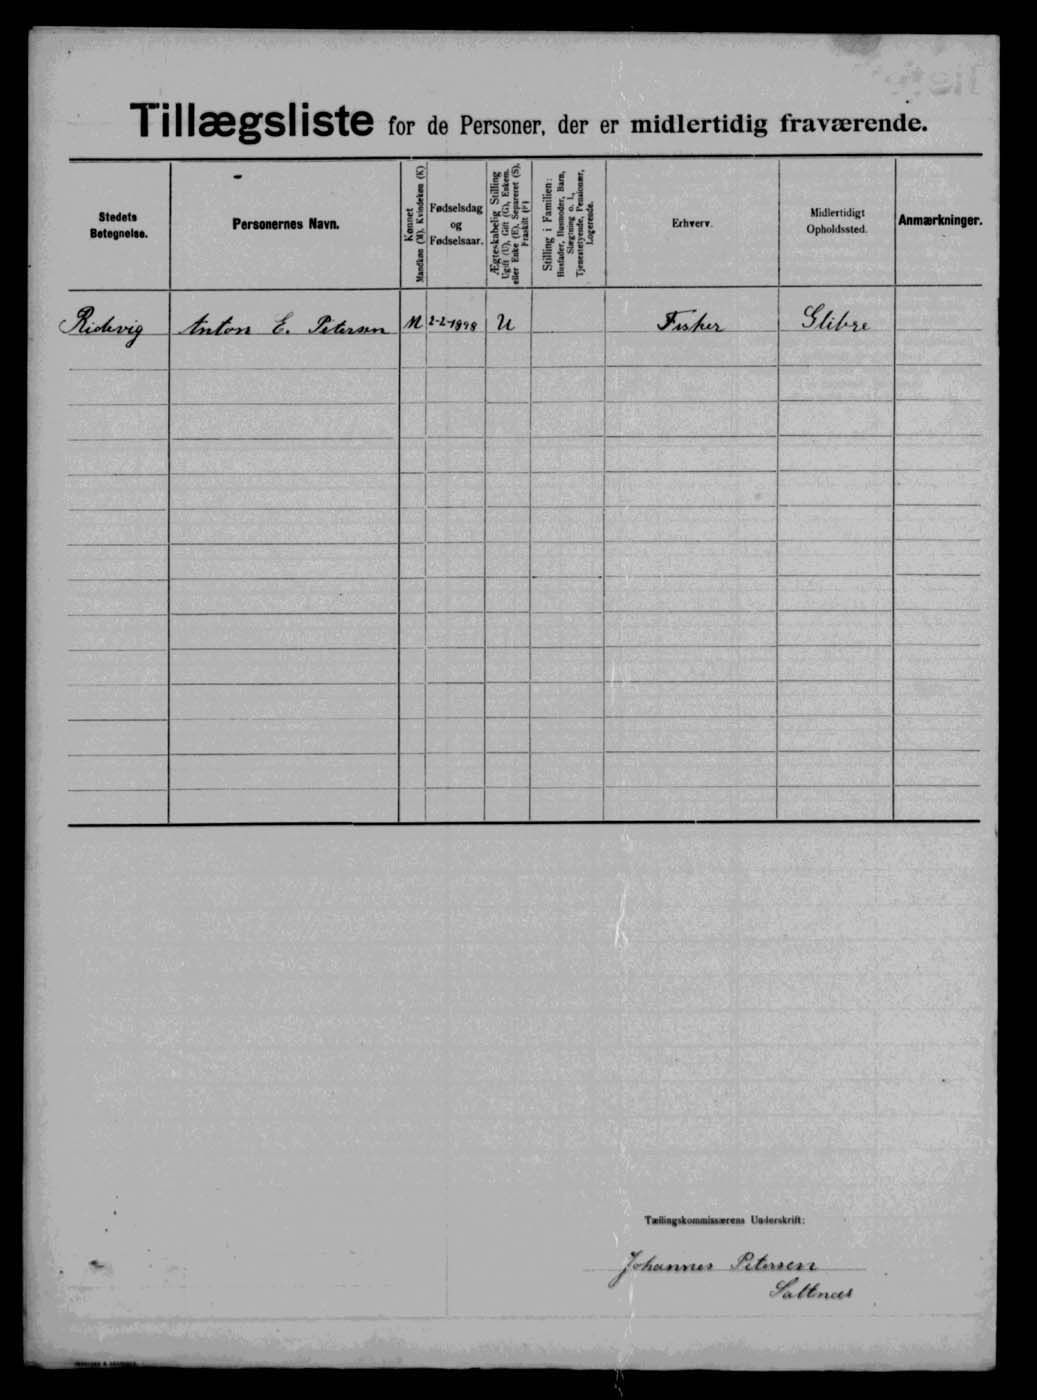 Tillægsliste for de Personer, der er midlertidig fraværende.
Stedets
Betegnelse.
Personernes Navn.
Kønnet
Mandkøn (M). Kvindekøn (K)
Fødselsdag
og
Fødselsaar.
Ægteskabelig Stilling
Ugift (U), Gift (G), Enkem.
eller Enke (E), Separeret (S),
Fraskilt (F)
Stilling i Familien:
Husfader, Husmoder, Barn,
Slægtning o. l.,
Tjenestetyende, Pensionær,
Logerende.
Erhverv.
Midlertidigt
Opholdssted.
Anmærkninger.
Ridevig Anton E. Petersen M 2-2-1898 U Fisker Glibre
Tællingskommissærens Underskrift:
Johannes Petersen
Saltnæs